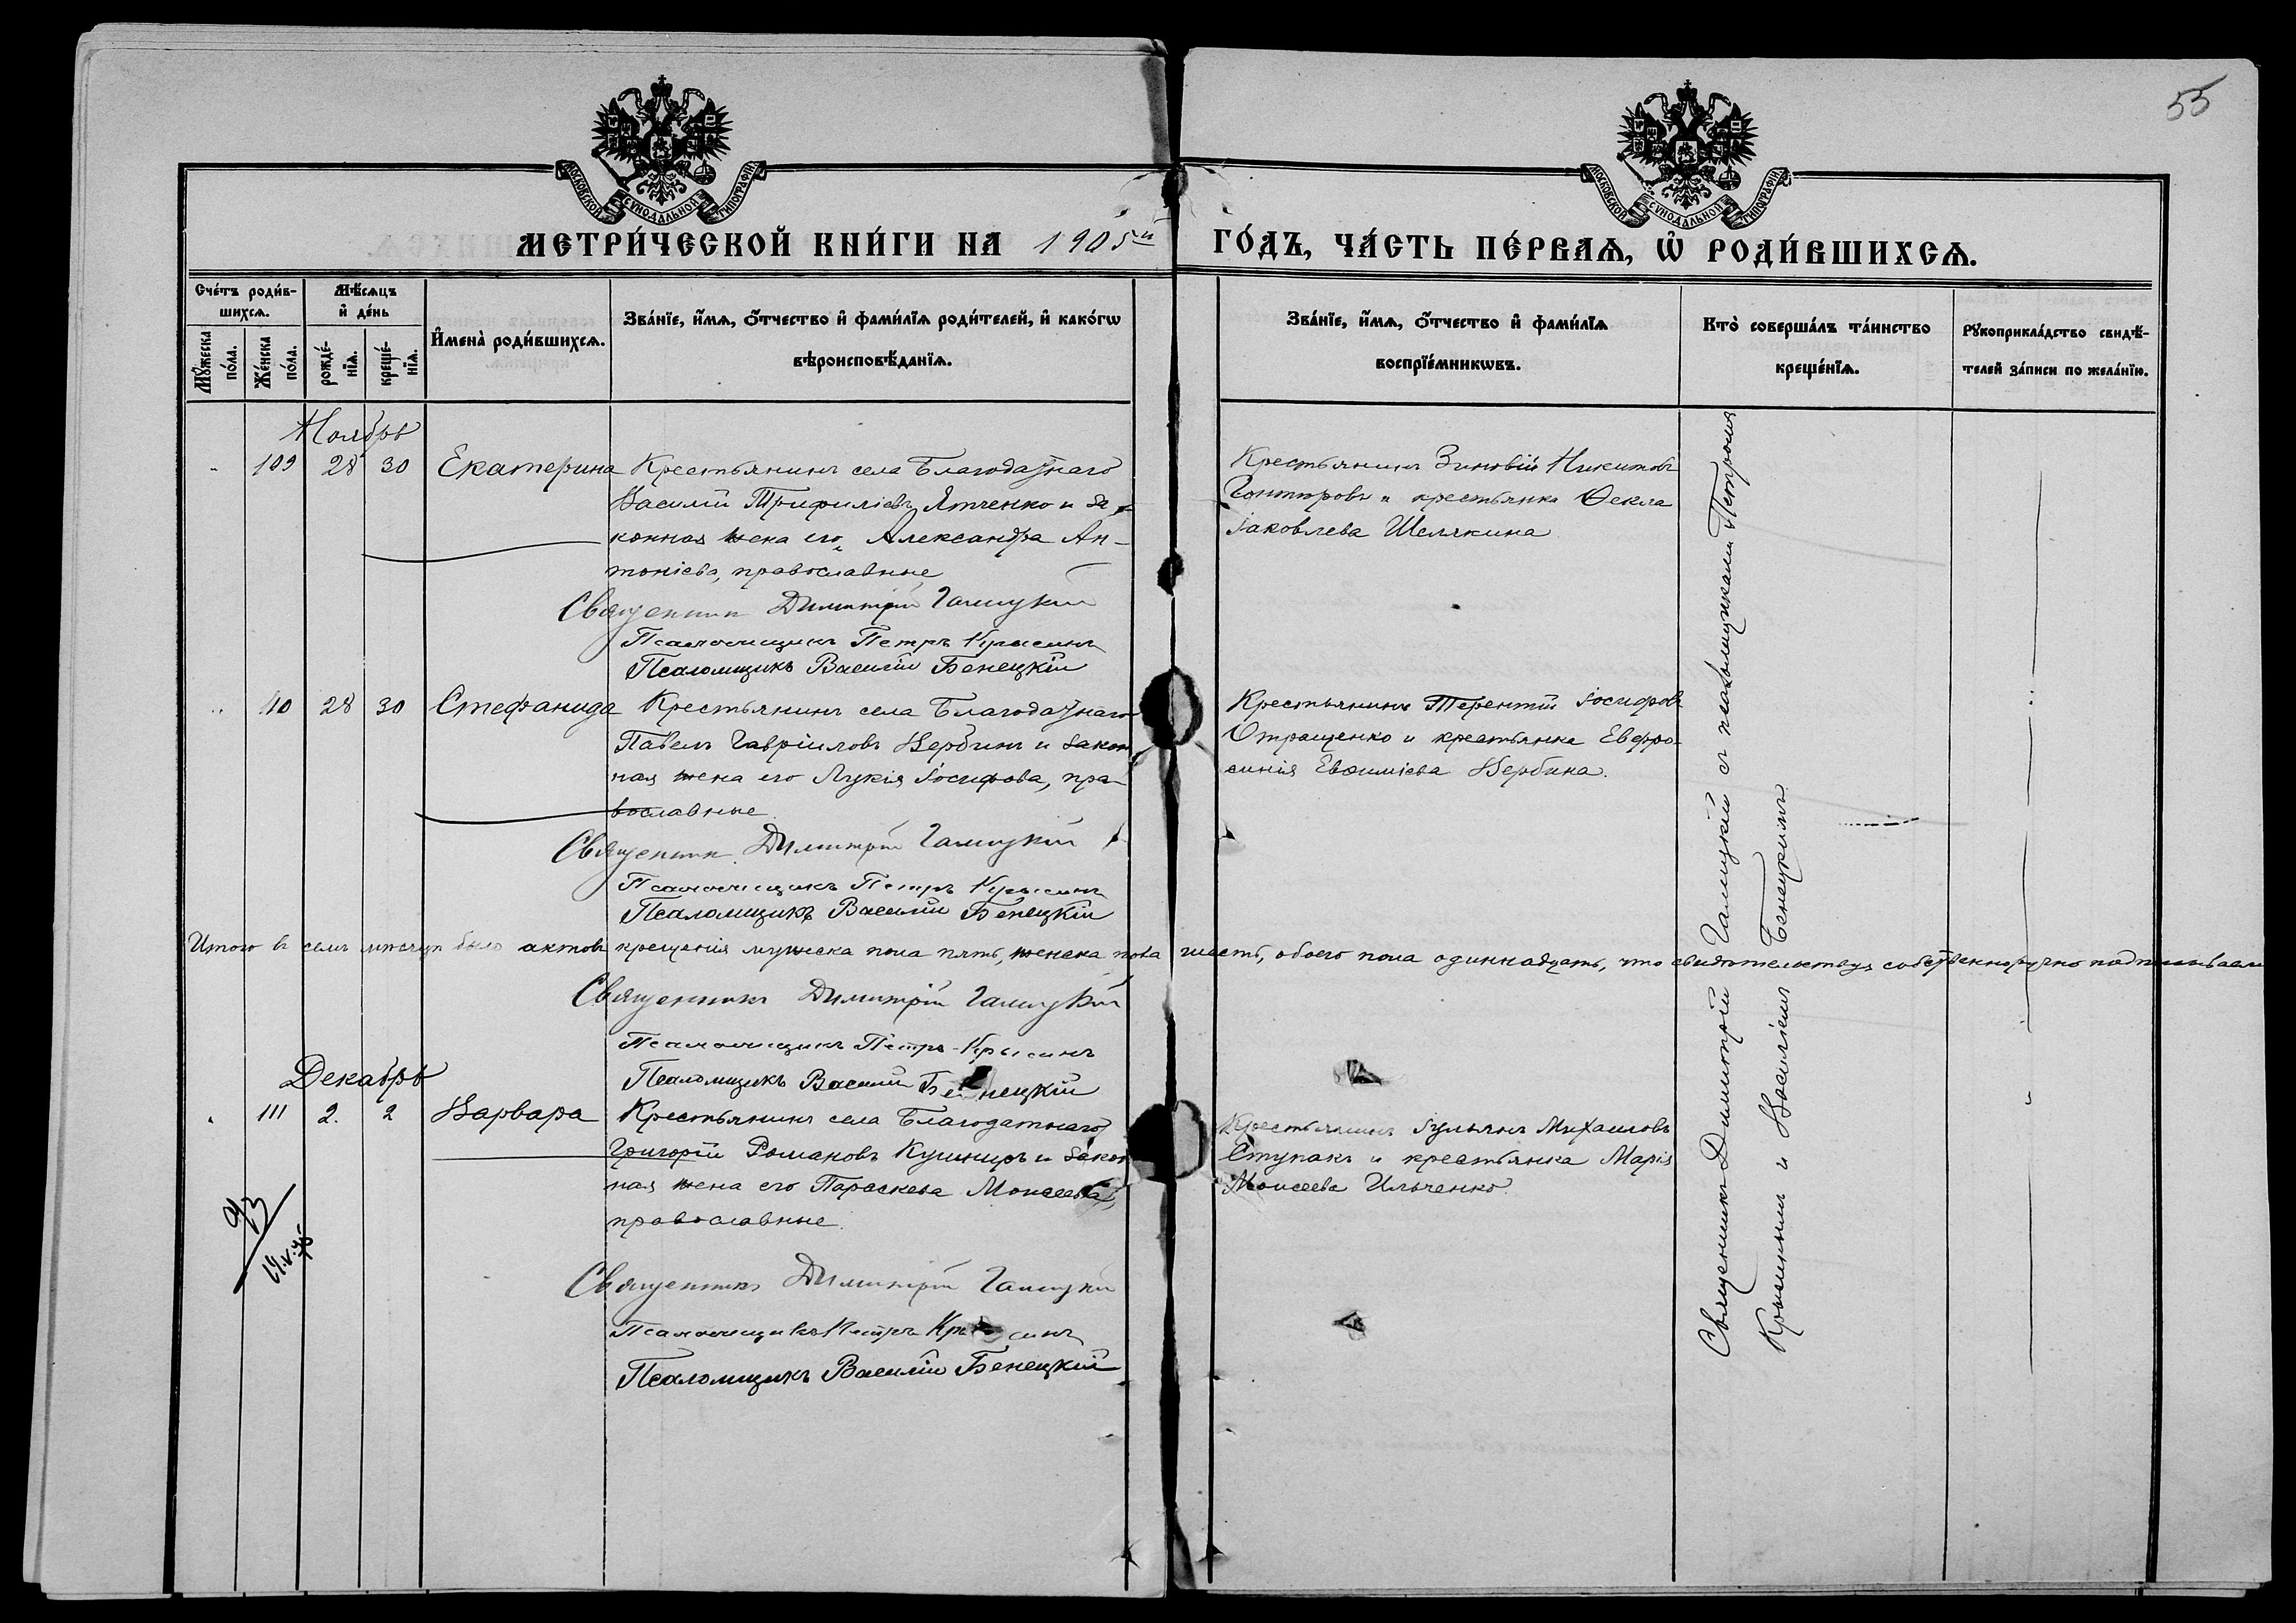 55
МОСКОВСКОЙ СУНОДАЛЬНОЙ ТИПОГРАФІИ
МОСКОВСКОЙ СУНОДАЛЬНОЙ ТИПОГРАФІИ
МЕТРИ́ЧЕСКОЙ КНИ́ГИ НА 1905й ГО́ДЪ, ЧА́СТЬ ПЕ́РВАѦ, Ѡ҆ РОДИ́ВШИХСѦ.
Сче́тъ роди́в-
шихсѧ.
Мꙋ́жеска по́ла.
Же́нска по́ла.
Мѣ́сѧцъ
и҆ де́нь
рожде́-
нїѧ.
креще́-
нїѧ.
И҆мена̀ роди́вшихсѧ.
Зва́нїе, и҆́мѧ, ѻ҆́тчество и҆ фами́лїѧ роди́телей, и҆ како́гѡ
вѣроисповѣ́данїѧ.
Зва́нїе, и҆́мѧ, ѻ҆́тчество и҆ фами́лїѧ
воспрїе́мникѡвъ.
Кто̀ соверша́лъ та́инство
креще́нїѧ.
Рꙋкоприкла́дство свидѣ́-
телей за́писи по жела́нїю.
Ноябрь
109 28 30 Екатерина
Крестьянинъ села Благодатнаго
Василій Трифиліевъ Ятченко и за-
конная жена его Александра Ан-
тоніева, православные
Священникъ Димитрій Галицкій
Псаломщикъ Петръ Крысинъ
Псаломщикъ Василій Бенецкій
Крестьянинъ Зиновій Никитовъ
и крестьянка Ѳекла
Іаковлева Шелякина
110 28 30 Стефанида
Крестьянинъ села Благодатнаго
Павелъ Гавріиловъ Вербинъ и закон
ная жена его Лукія Іосифова, пра-
вославные
Священникъ Димитрій Галицкій
Псаломщикъ Петръ Крысинъ
Псаломщикъ Василій Бенецкій
Крестьянинъ Терентій Іосифовъ
Отрощенко и крестьянка Евфро-
синія Евѳиміева Вербина.
Итого въ семъ мѣсяцѣ было актовъ крещенія мужеска пола пять, женска пола шесть, обоего пола одиннадцать, что свидѣтельствуя собственноручно подписываемъ
Священникъ Димитрій Галицкій
Псаломщикъ Петръ Крысинъ
Псаломщикъ Василій Бенецкій
Декабрь
111 2. 2 Варвара
Крестьянинъ села Благодатнаго
Григорій Романовъ Кушниръ и закон
ная жена его Параскева Моисеева,
православные.
Священникъ Димитрій Галицкій
Псаломщикъ Петръ Крысинъ
Псаломщикъ Василій Бенецкій
Крестьянинъ Іульянъ Михаиловъ
Ступакъ и крестьянка Марія
Моисеева Ильченко
Священникъ Димитрій Галицкій съ псаломщиками Петромъ
Крысинымъ и Василіемъ Бенецкимъ.
93